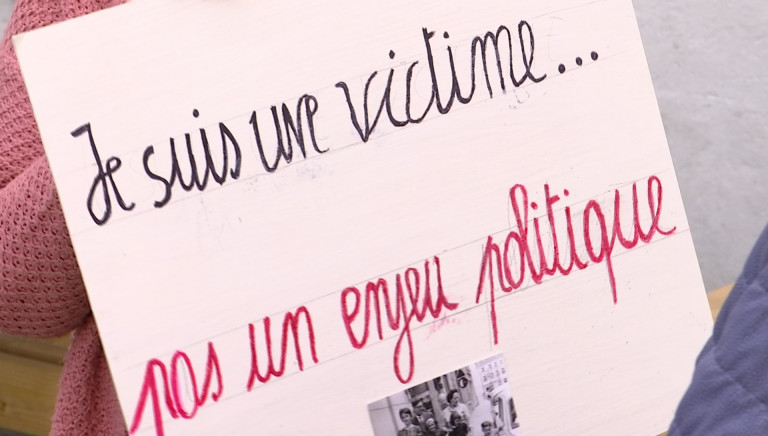 Je suis une victime...
pas un enjeu politique